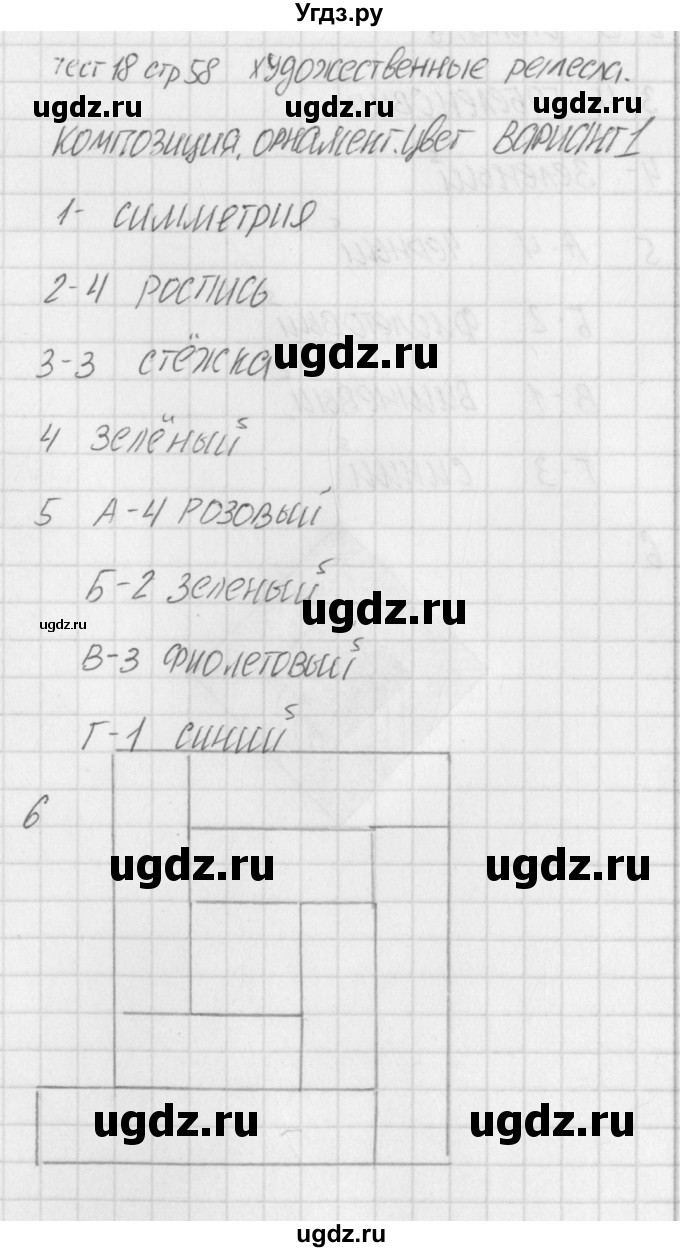 Угдз.ру
тест 18 стр 58 художественные ремесла.
ugdz.ru ugdz.ru ugdz.ru
композиция, орнамент. цвет вариант 1
1- симметрия
2-4 роспись
3-3 стёжка
ugdz.ru
4 зелёный
5 А-4 розовый
Б-2 зеленый
ugdz.ru
ugdz.ru
В-3 фиолетовый
Г-1 синий
6
ugdz.ru ugdz.ru
ugdz.ru ugdz.ru
ugdz.ru